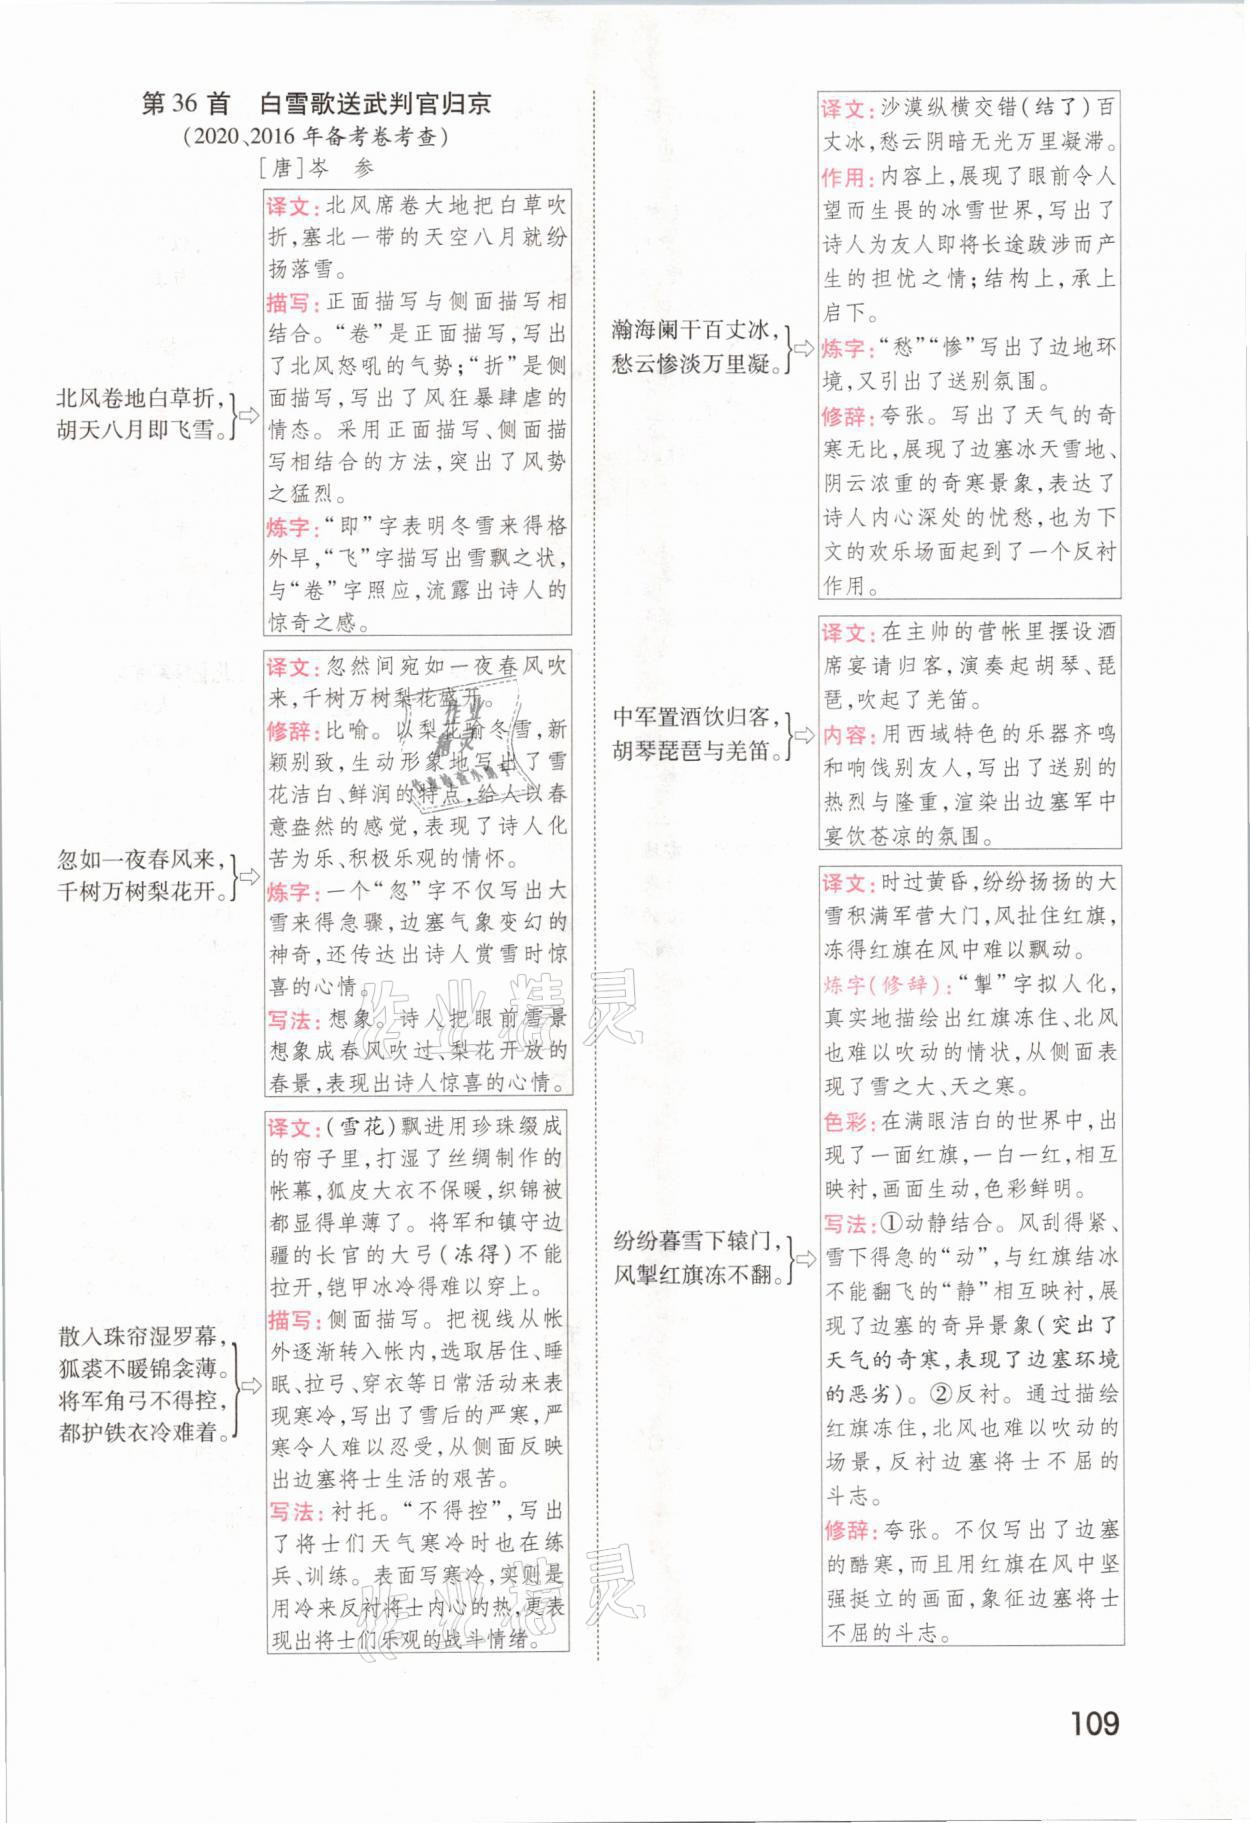 第36首 白雪歌送武判官归京
(2020、2016年备考卷考查)
[唐]岑 参
北风卷地白草折，
胡天八月即飞雪。
译文:北风席卷大地把白草吹
折,塞北一带的天空八月就纷
扬落雪。
描写:正面描写与侧面描写相
结合。“卷”是正面描写,写出
了北风怒吼的气势;“折”是侧
面描写,写出了风狂暴肆虐的
情态。采用正面描写、侧面描
写相结合的方法,突出了风势
之猛烈。
炼字:“即”字表明冬雪来得格
外早,“飞”字描写出雪飘之状,
与“卷”字照应,流露出诗人的
惊奇之感。
忽如一夜春风来,
千树万树梨花开。
译文:忽然间宛如一夜春风吹
来,千树万树梨花盛开。
修辞:比喻。以梨花喻冬雪,新
颖别致,生动形象地写出了雪
花洁白、鲜润的特点,给人以春
意盎然的感觉,表现了诗人化
苦为乐、积极乐观的情怀。
炼字:一个“忽”字不仅写出大
雪来得急骤,边塞气象变幻的
神奇,还传达出诗人赏雪时惊
喜的心情。
写法:想象。诗人把眼前雪景
想象成春风吹过、梨花开放的
春景,表现出诗人惊喜的心情。
散入珠帘湿罗幕,
狐裘不暖锦衾薄。
将军角弓不得控,
都护铁衣冷难着。
译文:(雪花)飘进用珍珠缀成
的帘子里,打湿了丝绸制作的
帐幕,狐皮大衣不保暖,织锦被
都显得单薄了。将军和镇守边
疆的长官的大弓(冻得)不能
拉开,铠甲冰冷得难以穿上。
描写:侧面描写。把视线从帐
外逐渐转入帐内,选取居住、睡
眠、拉弓、穿衣等日常活动来表
现寒冷,写出了雪后的严寒,严
寒令人难以忍受,从侧面反映
出边塞将士生活的艰苦。
写法:衬托。“不得控”,写出
了将士们天气寒冷时也在练
兵、训练。表面写寒冷,实则是
用冷来反衬将士内心的热,更表
现出将士们乐观的战斗情绪。
瀚海阑干百丈冰,
愁云惨淡万里凝。
译文:沙漠纵横交错(结了)百
丈冰,愁云阴暗无光万里凝滞。
作用:内容上,展现了眼前令人
望而生畏的冰雪世界,写出了
诗人为友人即将长途跋涉而产
生的担忧之情;结构上,承上
启下。
炼字:“愁”“惨”写出了边地环
境,又引出了送别氛围。
修辞:夸张。写出了天气的奇
寒无比,展现了边塞冰天雪地、
阴云浓重的奇寒景象,表达了
诗人内心深处的忧愁,也为下
文的欢乐场面起到了一个反衬
作用。
中军置酒饮归客,
胡琴琵琶与羌笛。
译文:在主帅的营帐里摆设酒
席宴请归客,演奏起胡琴、琵
琶,吹起了羌笛。
内容:用西域特色的乐器齐鸣
和响饯别友人,写出了送别的
热烈与隆重,渲染出边塞军中
宴饮苍凉的氛围。
纷纷暮雪下辕门,
风掣红旗冻不翻。
译文:时过黄昏,纷纷扬扬的大
雪积满军营大门,风扯住红旗,
冻得红旗在风中难以飘动。
炼字(修辞):“掣”字拟人化,
真实地描绘出红旗冻住、北风
也难以吹动的情状,从侧面表
现了雪之大、天之寒。
色彩:在满眼洁白的世界中,出
现了一面红旗,一白一红,相互
映衬,画面生动,色彩鲜明。
写法:①动静结合。风刮得紧、
雪下得急的“动”,与红旗结冰
不能翻飞的“静”相互映衬,展
现了边塞的奇异景象(突出了
天气的奇寒,表现了边塞环境
的恶劣)。②反衬。通过描绘
红旗冻住,北风也难以吹动的
场景,反衬边塞将士不屈的
斗志。
修辞:夸张。不仅写出了边塞
的酷寒,而且用红旗在风中坚
强挺立的画面,象征边塞将士
不屈的斗志。
作业精灵
作业精灵
作业
精灵
109